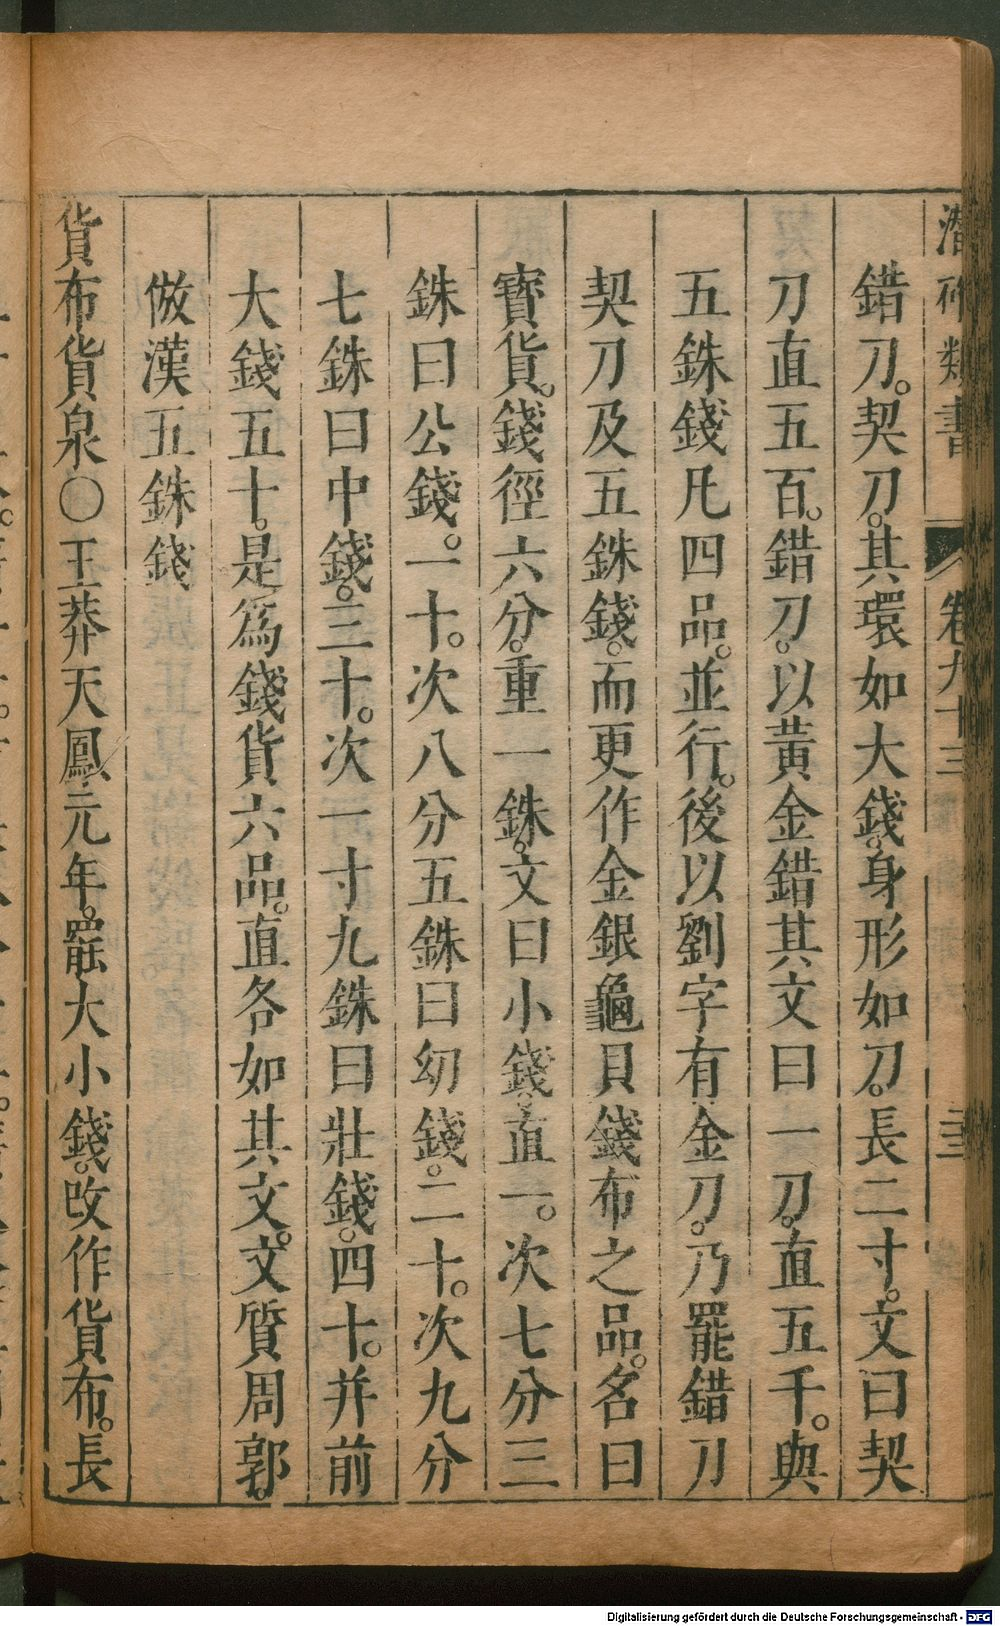 潛确類書 卷九十三
錯刀。契刀。其環如大錢。身形如刀。長二寸。文曰契
刀直五百。錯刀。以黃金錯其文曰一刀。直五千。與
五銖錢凡四品。並行。後以劉字有金刀。乃罷錯刀
契刀及五銖錢。而更作金銀龜貝錢布之品。名曰
寶貨。錢徑六分。重一銖。文曰小錢。直一。次七分三
銖曰公錢。一十。次八分五銖曰幼錢。二十。次九分
七銖曰中錢。三十。次一寸九銖曰壯錢。四十。并前
大錢五十。是爲錢貨六品。直各如其文。文質周郭。
倣漢五銖錢
貨布貨泉○王莽天鳳元年。罷大小錢。改作貨布。長
Digitalisierung gefördert durch die Deutsche Forschungsgemeinschaft - DFG